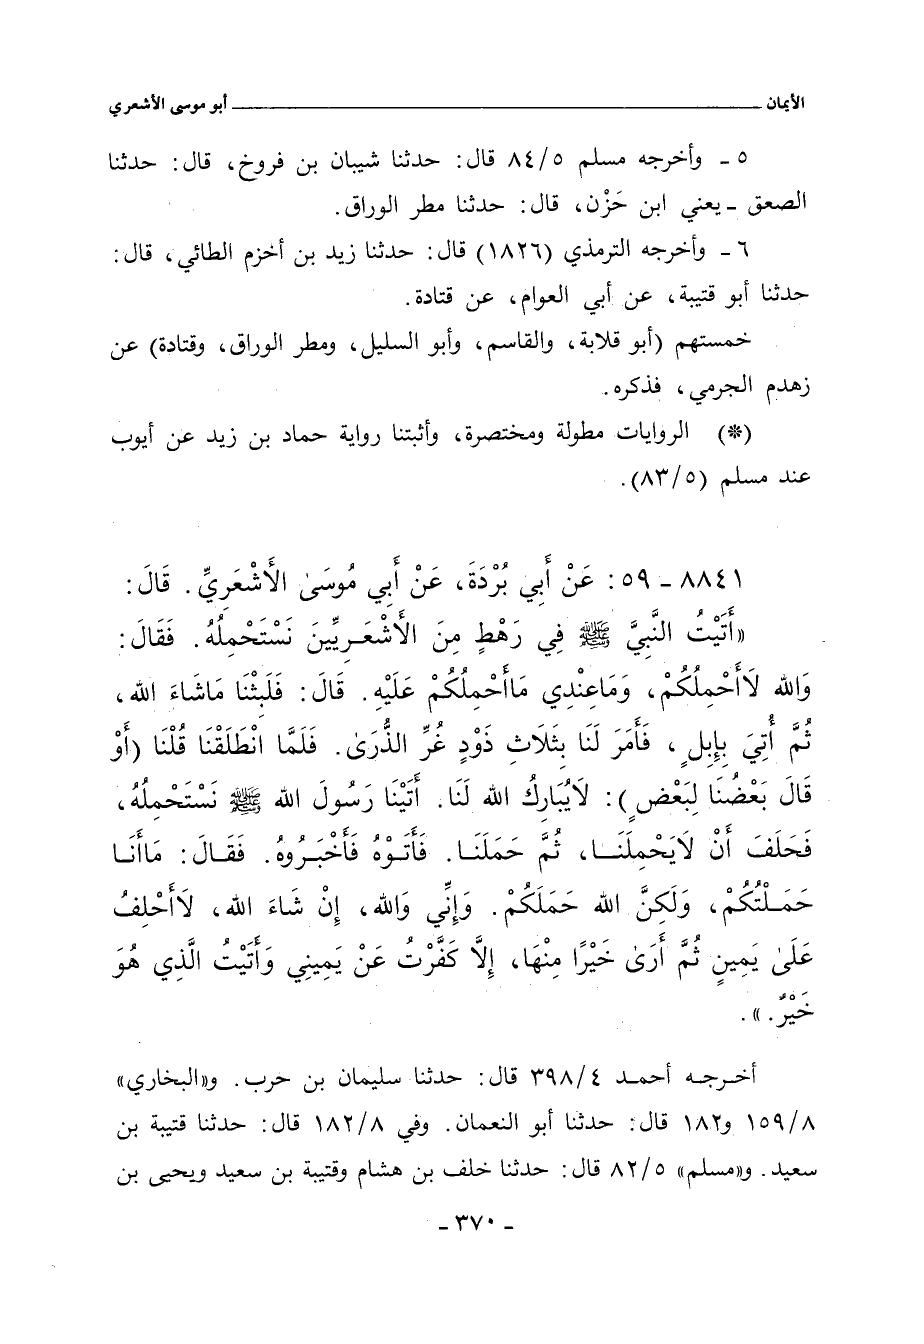 الأيمان ــــــــــــــــــــ أبو موسى الأشعري
٥ ـ وأخرجه مسلم ٨٤/٥ قال: حدثنا شيبان بن فروخ، قال: حدثنا
الصعق ـ يعني ابن حَزْن، قال: حدثنا مطر الوراق.
٦ ـ وأخرجه الترمذي (١٨٢٦) قال: حدثنا زيد بن أخزم الطائي، قال:
حدثنا أبو قتيبة، عن أبي العوام، عن قتادة.
خمستهم (أبو قلابة، والقاسم، وأبو السليل، ومطر الوراق، وقتادة) عن
زهدم الجرمي، فذكره.
(*) الروايات مطولة ومختصرة، وأثبتنا رواية حماد بن زيد عن أيوب
عند مسلم (٨٣/٥).
٨٨٤١ ـ ٥٩: عَنْ أَبِي بُرْدَةَ، عَنْ أَبِي مُوسَىٰ الأَشْعَرِيِّ. قَالَ:
«أَتَيْتُ النَّبِيَّ ﷺ فِي رَهْطٍ مِنَ الأَشْعَرِيِّينَ نَسْتَحْمِلُهُ. فَقَالَ:
وَالله لَاأَحْمِلُكُمْ، وَمَاعِنْدِي مَاأَحْمِلُكُمْ عَلَيْهِ. قَالَ: فَلَبِثْنَا مَاشَاءَ الله،
ثُمَّ أُتِيَ بِإِبلٍ، فَأَمَرَ لَنَا بِثَلَاثِ ذَوْدٍ غُرِّ الذُّرَىٰ. فَلَمَّا انْطَلَقْنَا قُلْنَا (أَوْ
قَالَ بَعْضُنَا لِبَعْضٍ): لَايُبَارِكُ الله لَنَا. أَتَيْنَا رَسُولَ الله ﷺ نَسْتَحْمِلُهُ،
فَحَلَفَ أَنْ لَايَحْمِلَنَا، ثُمَّ حَمَلَنَا. فَأَتَوْهُ فَأَخْبَرُوهُ. فَقَالَ: مَاأَنَا
حَمَلْتُكُمْ، وَلَكِنَّ الله حَمَلَكُمْ. وَإِنِّي وَالله، إِنْ شَاءَ الله، لَاأَحْلِفُ
عَلَىٰ يَمِينٍ ثُمَّ أَرَىٰ خَيْرًا مِنْهَا، إِلَّا كَفَّرْتُ عَنْ يَمِينِي وَأَتَيْتُ الَّذِي هُوَ
خَيْرٌ.».
أخرجه أحمد ٣٩٨/٤ قال: حدثنا سليمان بن حرب. و«البخاري»
١٥٩/٨ و١٨٢ قال: حدثنا أبو النعمان. وفي ١٨٢/٨ قال: حدثنا قتيبة بن
سعيد. و«مسلم» ٨٢/٥ قال: حدثنا خلف بن هشام وقتيبة بن سعيد ويحيى بن
ـ ٣٧٠ ـ